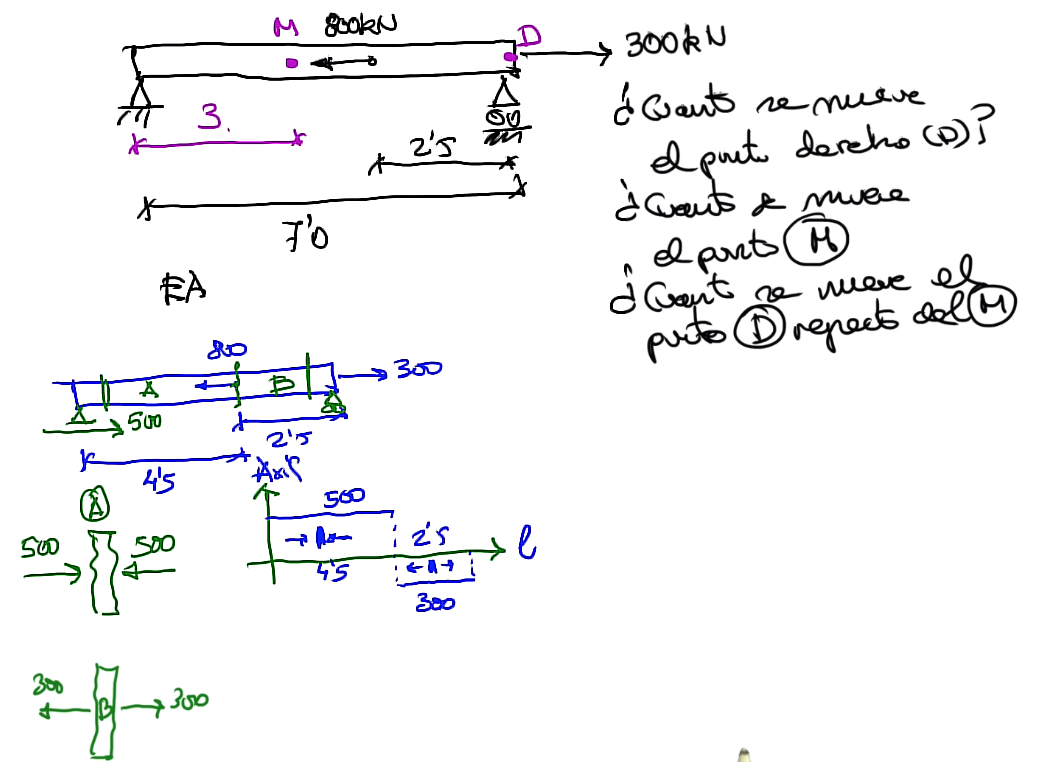 M 800kN D
300kN
3.
2'5
7'0
EA
¿Cuanto se mueve
el punto derecho (D)?
¿Cuanto se mueve
el punto M
¿Cuanto se mueve el
punto D respecto del M
800
A B 300
500
2'5
4'5
Axil
A
500
500 500
2'5 l
4'5
300
300 B 300